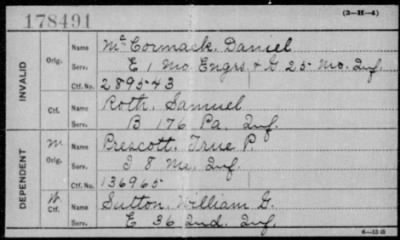 178491
(3-H-4)
INVALID
Orig.
Name McCormack, Daniel
Serv. E 1 Mo. Engrs. & G 25 Mo. Inf.
Ctf. No. 289543
Ctf.
Name Roth, Samuel
Serv. B 176 Pa. Inf.
DEPENDENT
M
Orig.
Name Prescott, True P.
Serv. I 8 Me. Inf.
Ctf. No. 136965
W
Ctf.
Name Sutton, William G.
Serv. E 36 Ind. Inf.